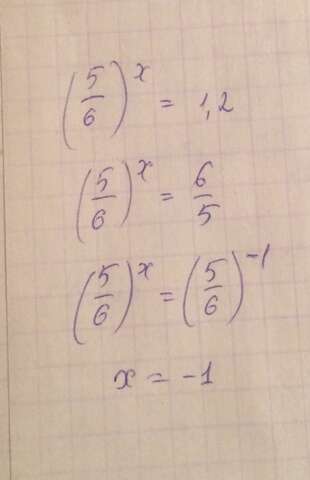 (5/6)^x = 1,2
(5/6)^x = 6/5
(5/6)^x = (5/6)^-1
x = -1